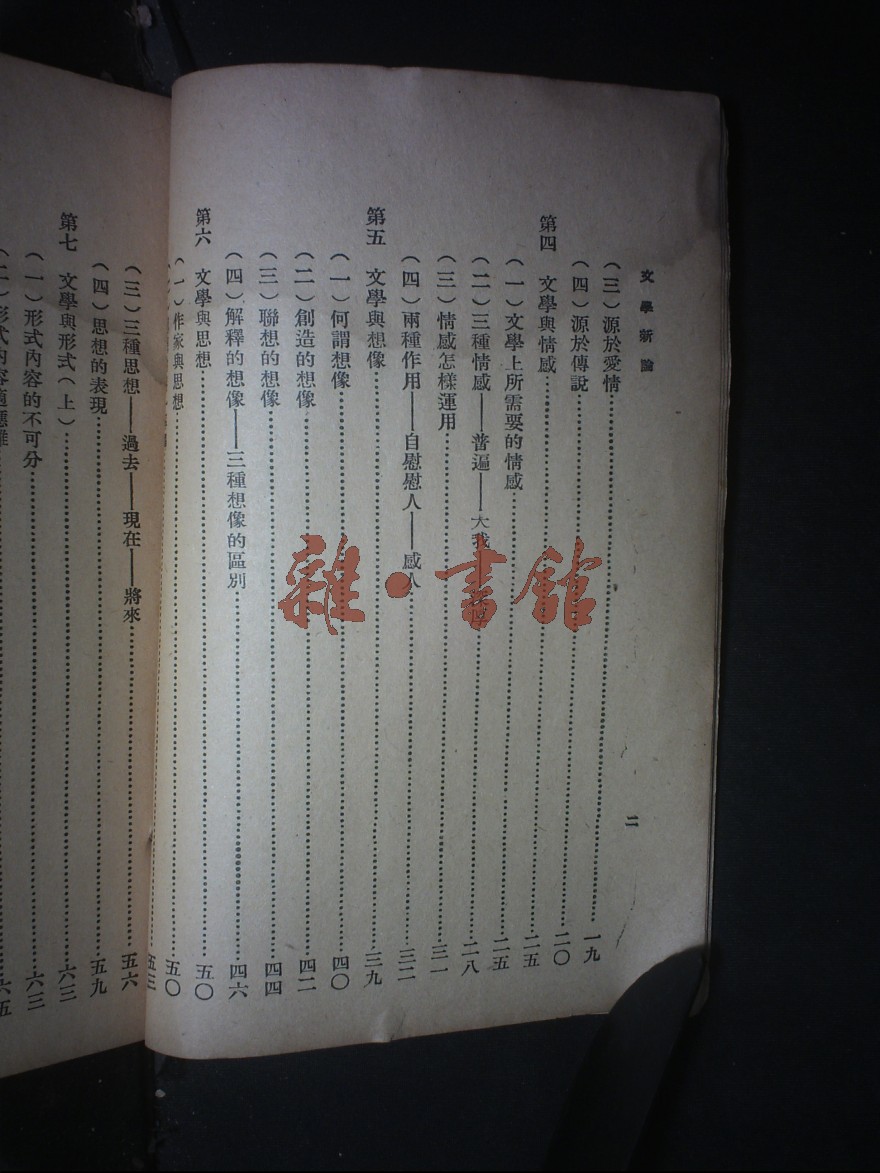 文學新論
二
(三)源於愛情……一九
(四)源於傳說……二〇
第四 文學與情感……二五
(一)文學上所需要的情感……二五
(二)三種情感——普遍——大我……二八
(三)情感怎樣運用……三一
(四)兩種作用——自慰慰人——感人……三二
第五 文學與想像……三九
(一)何謂想像……四〇
(二)創造的想像……四二
(三)聯想的想像……四四
(四)解釋的想像——三種想像的區別……四六
第六 文學與思想……五〇
(一)作家與思想……五〇
五三
(三)三種思想——過去——現在——將來……五六
(四)思想的表現……五九
第七 文學與形式(上)……六三
(一)形式內容的不可分……六三
(二)形式內容……六五
雜·書館